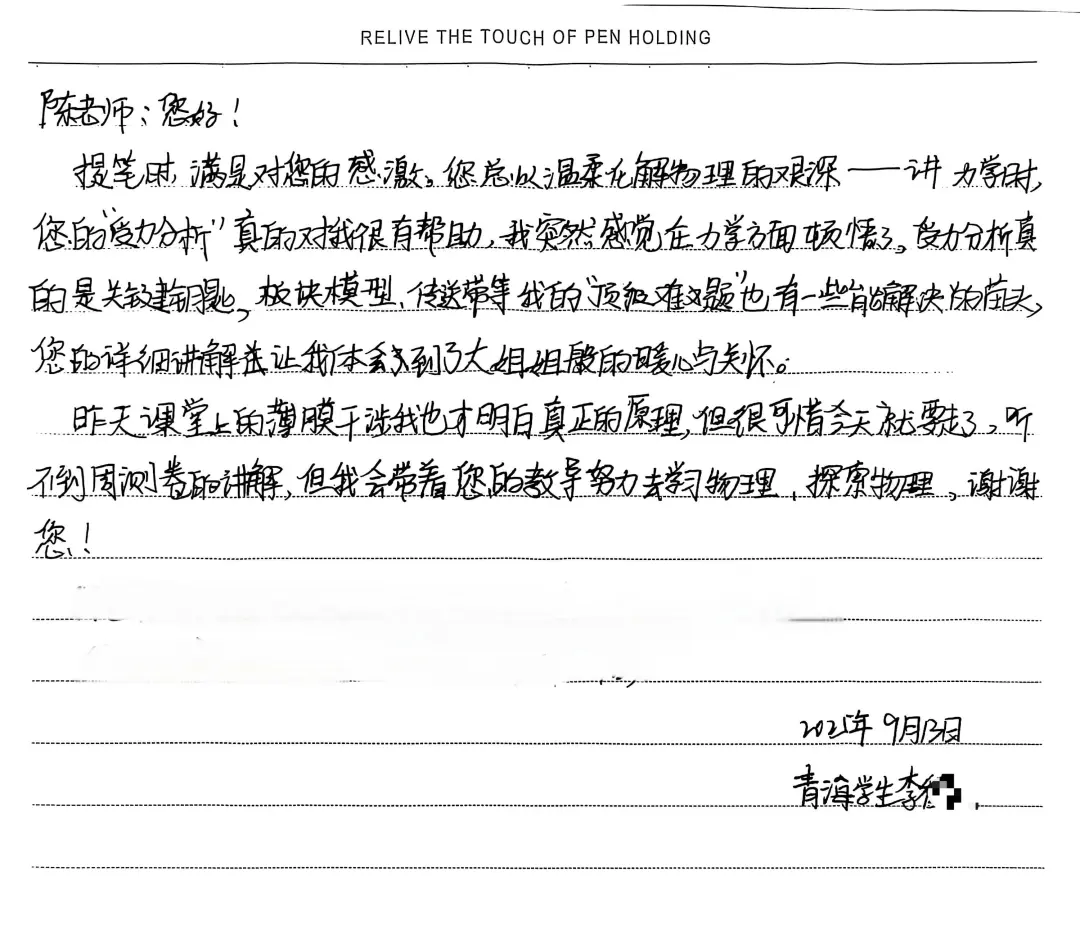 RELIVE THE TOUCH OF PEN HOLDING
陈老师：您好！
提笔时，满是对您的感激。您总以温柔化解物理的艰深——讲力学时，
您的“受力分析”真的对我很有帮助，我突然感觉在力学方面顿悟了，受力分析真
的是关键钥匙，板块模型、传送带等我的“顶级难题”也有一些能解决的苗头，
您的详细讲解法让我体会到了大姐姐般的暖心与关怀。
昨天课堂上的薄膜干涉我也才明白真正的原理，但很可惜今天就要走了，听
不到周测卷的讲解，但我会带着您的教导努力去学习物理，探索物理，谢谢
您！
2025年9月13日
青海学生李